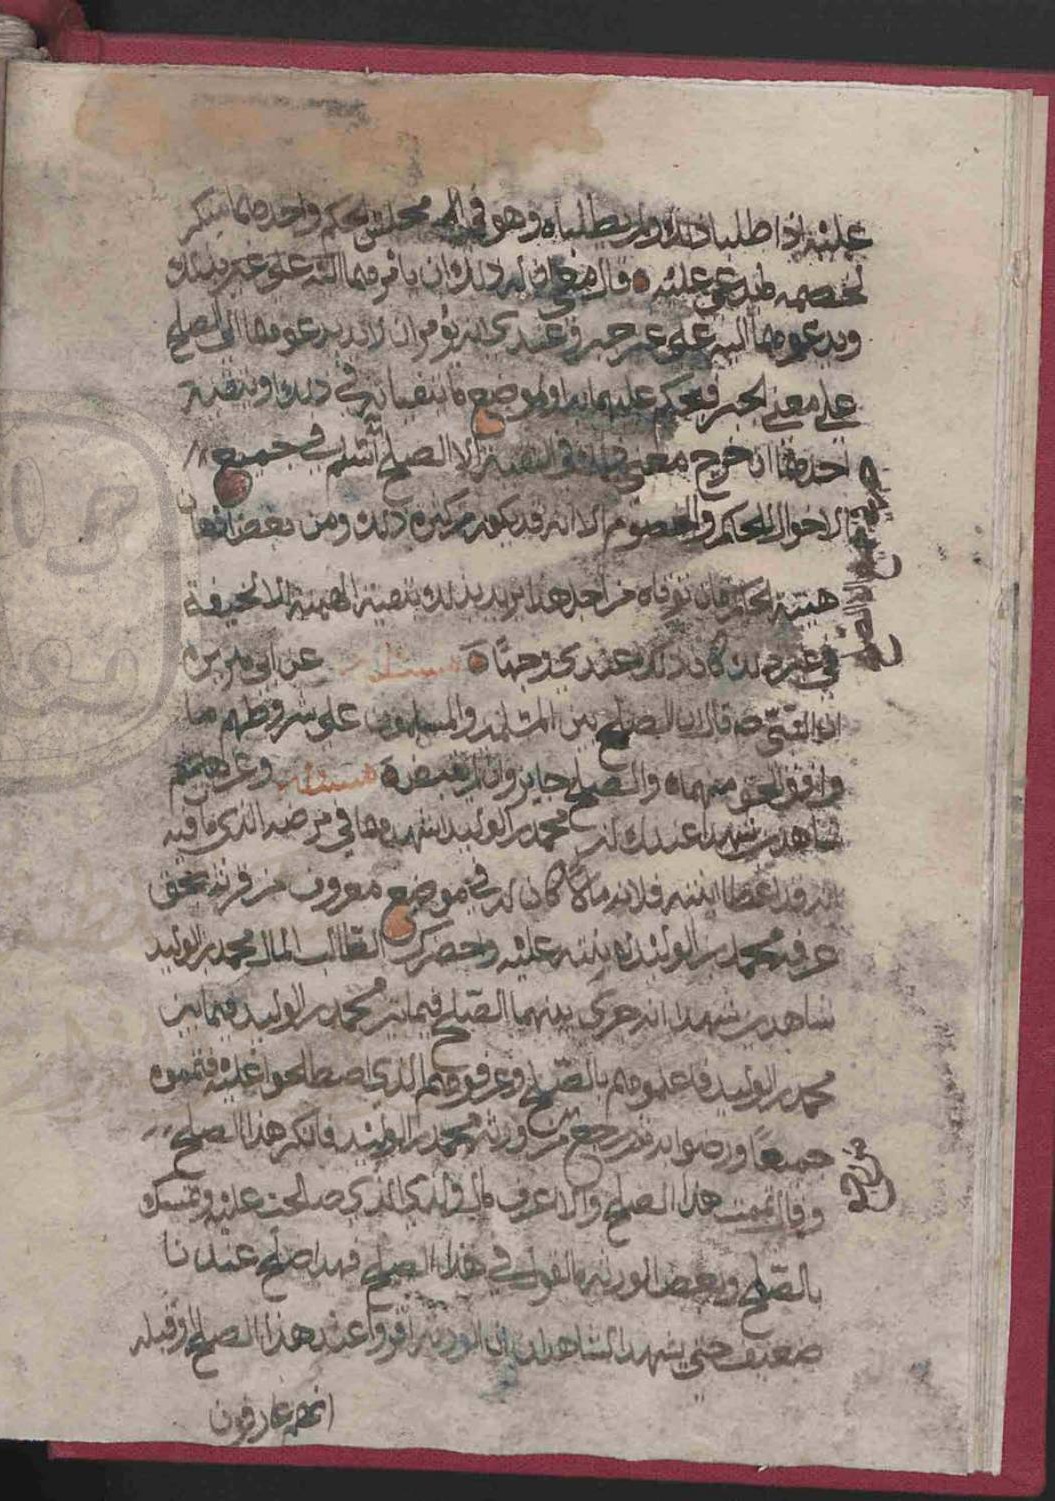 عليه اذا طلبا ذلك وان لم يطلباه وهو في مجلس الحكم واحدهما منكر
لخصمه فيما يدعي عليه قال معي ان له ذلك ان يامرهما الله على غير
ويدعوهما اليه على غير جبر وعندي انه يؤمر ان لا يدعوهما الى الصلح
على معنى الجبر فيحكم عليهما به او لموضع ما يتقيانه في ذلك او يتقيه
احدهما ان خرج معنى ذلك في التقية الا الصلح اسلم في جميع
الاحوال للحاكم والخصوم الا انه قد يكون من كثرة ذلك ومن بعض
هيبة الحاكم فان توقاه من اجل هذا يريد بذلك تقية الهيبة لا لخيفة
في غير ذلك كان ذلك عندي وجها مسئلة عن ابي هريرة
ان النبي صه قال ان الصلح بين المسلمين والمسلمون على شروطهم ما
وافق الحق منهما والصلح جايز وان لم يقبض مسئلة وعن
شاهدين شهدا عندك ان محمد بن الوليد اشهدهما في مرضه الذي مات فيه
انه قد اعطا ابنته فلانة مالا كان له في موضع معروف من قرية بحق
عرفه محمد بن الوليد لابنته عليه واحضرك الطالب المال محمد بن الوليد
شاهدين شهدا انه جرى بينهما الصلح فيما بين محمد بن الوليد فيما بين
محمد بن الوليد فاعلموهم بالصلح وعرفوهم الذي اصطلحوا عليه فتمموه
جميعا ورضوا به ثم رجع من ورثة محمد بن الوليد فانكر هذا الصلح
وقال تممت هذا الصلح وانا لا اعرف مال والدي الذي صالحت عليه وتمسك
بالصلح وبعض الورثة فالقول في هذا الصلح فهذا صلح عندنا
ضعيف حتى يشهد الشاهدان ان الورثة اقروا عند هذا الصلح وقبله
انهم عارفون